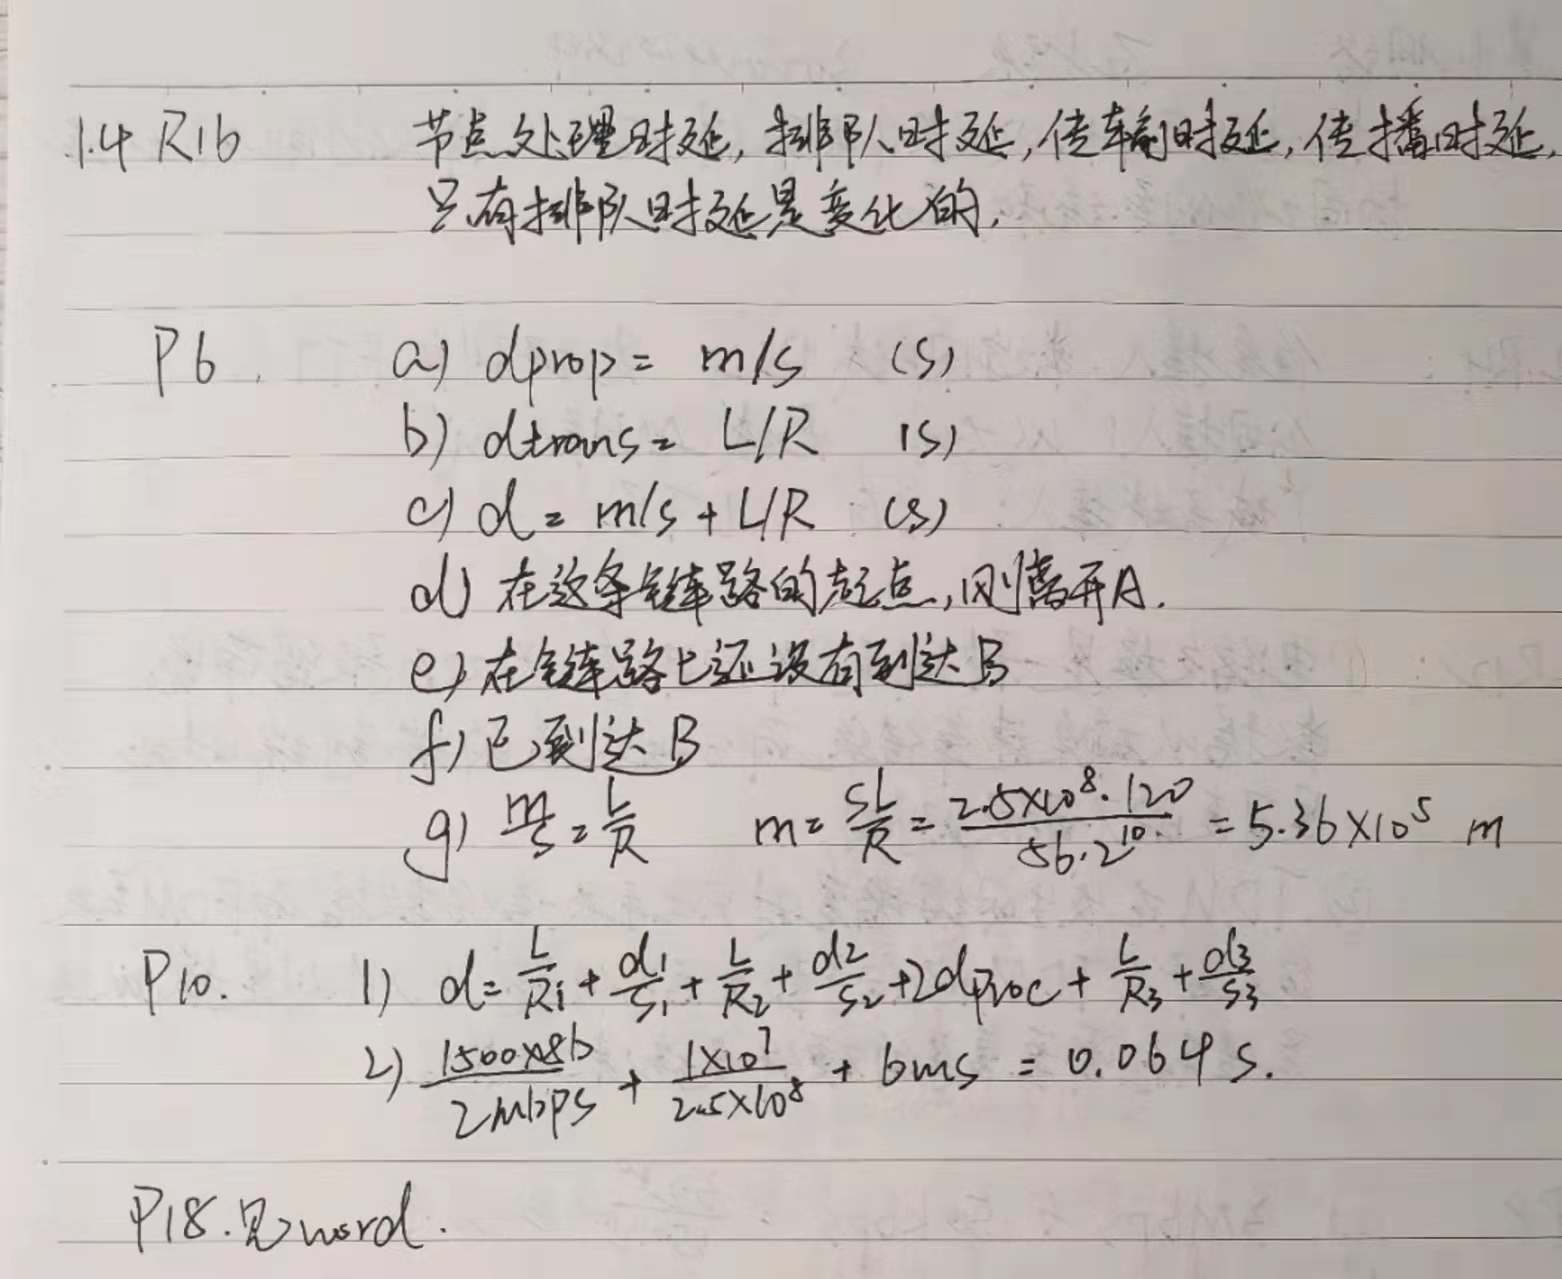 1.4 R16 节点处理时延, 排队时延, 传输时延, 传播时延.
只有排队时延是变化的.
P6. a) dprop = m/s (s)
b) dtrans = L/R (s)
c) d = m/s + L/R (s)
d) 在这条链路的起点, 刚离开A.
e) 在链路上还没有到达B
f) 已到达B
g) m/s = L/R m = SL/R = 2.5×10⁸·120/56·2¹⁰ = 5.36×10⁵ m
P10. 1) d = L/R₁ + d₁/S₁ + L/R₂ + d₂/S₂ + 2dproc + L/R₃ + d₃/S₃
2) 1500×8b/2Mbps + 1×10⁷/2.5×10⁸ + 6ms = 0.064 s.
P18. 见word.